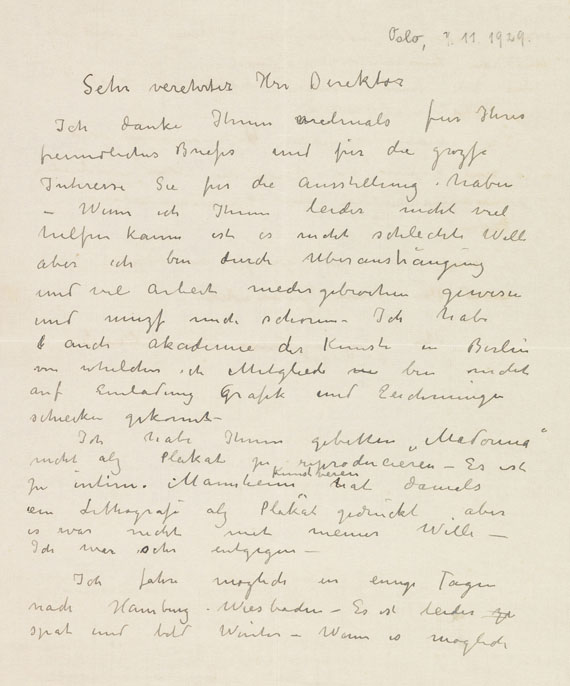 Oslo, 7. 11. 1929.
Sehr verehrter Herr Direktor
Ich danke Ihnen vielmals für Ihres
freundliches Briefes und für die grozse
Interesse Sie für die Ausstellung haben
– Wenn ich Ihnen leider nicht viel
helfen kann ist es nicht schlechte Wille
aber ich bin durch Überansträngung
und viel Arbeit niedergebrochen gewesen
und muszf mich schonen – Ich habe
auch Akademie der Künste in Berlin
von whelcher ich Mitglied bin nicht
auf Einladung Grafik und Zeichnungen
schicken gekonnt –
Ich habe Ihnen gebetten „Madonna"
nicht alz Plakat zu reproducieren – Es ist
zu intim. Mannheim Kunstverein hat damals
ein Lithografi alz Plakat gedruckt aber
es war nicht mit meiner Wille –
Ich war sehr entgegen –
Ich fahre möglich in einige Tagen
nach Hamburg. Wiesbaden – Es ist leider
spät und bald Winter – Wenn es möglich